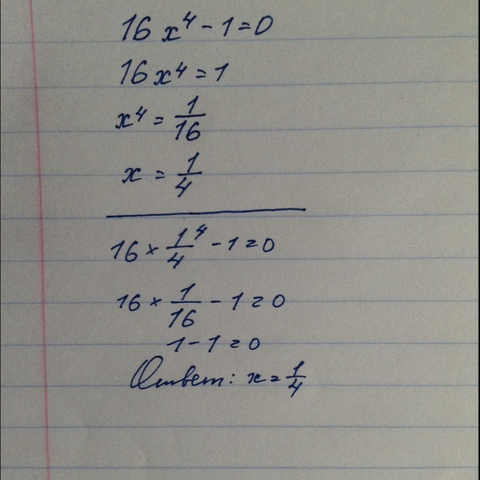 16 x⁴ - 1 = 0
16 x⁴ = 1
x⁴ = 1/16
x = 1/4
16 × 1⁴/4 - 1 = 0
16 × 1/16 - 1 = 0
1 - 1 = 0
Ответ: x = 1/4